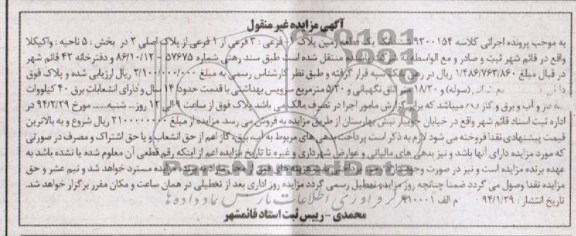 آگهی مزایده غیر منقول
به موجب پرونده اجرائی کلاسه ۹۳۰۰۱۵۴ ششدانگ یک قطعه زمین پلاک ۱ فرعی : ۳ فرعی از ۱ فرعی از پلاک اصلی ۳ در بخش : ۵ ناحیه : واکیکلا
واقع در قائم شهر ثبت و صادر و مع الواسطه به منتقل شده است طبق سند رهنی شماره ۵۷۶۷۵ - ۸۶/۱۰/۱۲ و دفترخانه ۴۲ قائم شهر
در قبال مبلغ ۱/۴۸۶/۷۶۳/۸۶۰ ریال در رهن قرار گرفته و طبق نظر کارشناس رسمی به مبلغ ۲/۱۰۰/۰۰۰/۰۰۰ ریال ارزیابی شده و پلاک فوق
(سوله) و ۱۸/۲۰ اتاق نگهبانی و ۵/۲۰ مترمربع سرویس بهداشتی با قدمت حدود ۱۴ سال و دارای انشعابات برق ۴۰ کیلووات
و آب و برق و گاز میباشد که برابر گزارش مامور اجرا در تصرف مالک می باشد پلاک فوق از ساعت ۹ الی ۱۲ روز شنبه مورخ ۹۴/۲/۲۹ در
اداره ثبت اسناد قائم شهر واقع در خیابان نبش بهارستان از طریق مزایده به فروش می رسد. مزایده از مبلغ ۲۱۰۰۰۰۰۰۰۰ ریال شروع و به بالاترین
قیمت پیشنهادی نقدا فروخته می شود لازم به ذکر است پرداخت بدهی های مربوط به آب، برق، گاز اعم از حق انشعاب و یا حق اشتراک و مصرف در صورتی
که مورد مزایده دارای آنها باشد و نیز بدهی های مالیاتی و عوارض شهرداری و غیره تا تاریخ مزایده اعم از اینکه رقم قطعی آن معلوم شده یا نشده باشد به
عهده برنده مزایده است و نیز در صورت وجود مسترد خواهد شد و نیم عشر و حق
مزایده نقدا وصول می گردد ضمنا چنانچه روز مزایده تعطیل رسمی گردد مزایده روز اداری بعد از تعطیلی در همان ساعت و مکان مقرر برگزار خواهد شد.
تاریخ انتشار : ۹۴/۱/۲۹ م الف ۹۱۰۰۰۱
محمدی - رییس ثبت اسناد قائمشهر
ParsNamadData